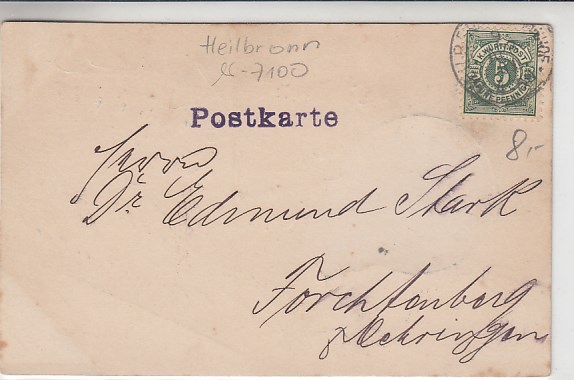 Heilbronn
-7100
K.WÜRTT.POST
5
FÜNF PFENNIG
Postkarte
8,-
Herrn
Dr. Edmund Stark
Forchtenberg
Oehringen